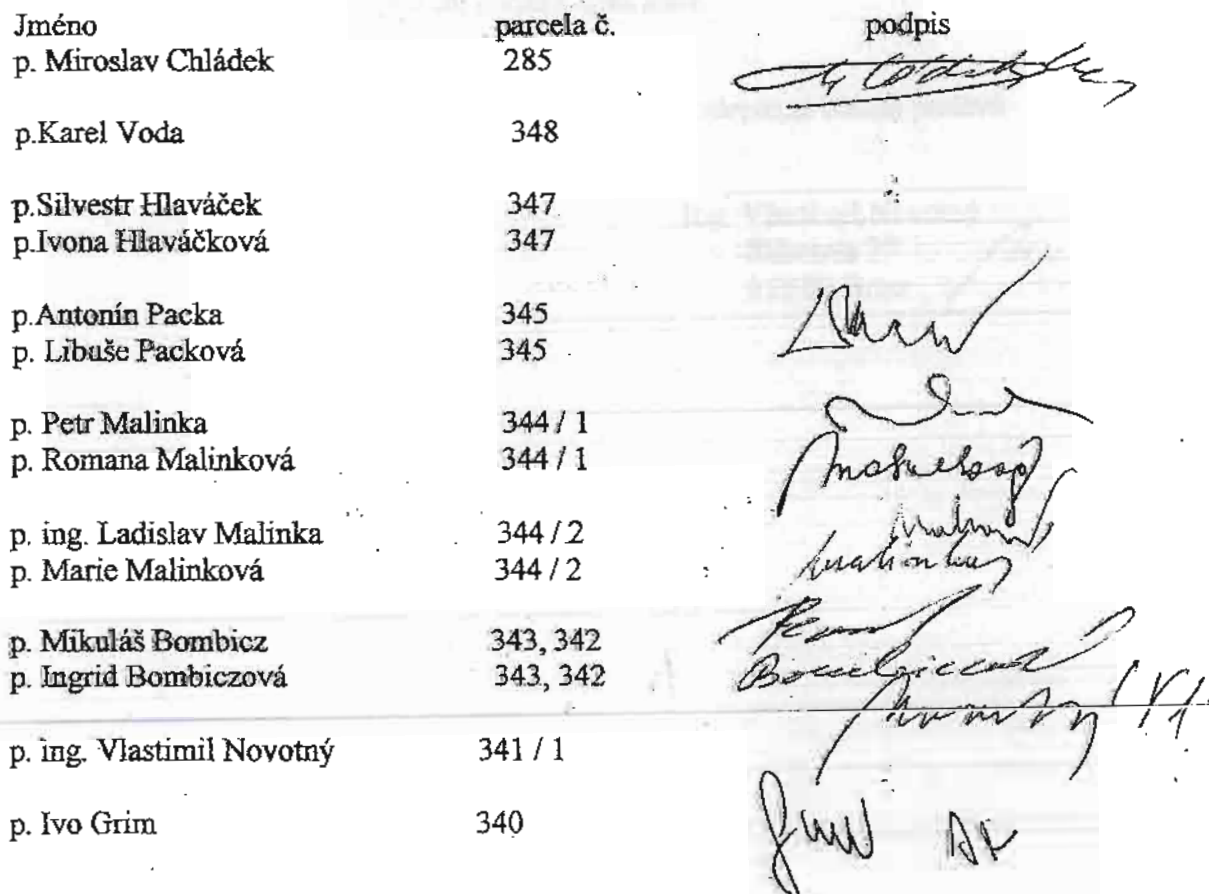 Jméno parcela č. podpis
p. Miroslav Chládek 285
p.Karel Voda 348
p.Silvestr Hlaváček 347
p.Ivona Hlaváčková 347
p.Antonín Packa 345
p. Libuše Packová 345
p. Petr Malinka 344 / 1
p. Romana Malinková 344 / 1
p. ing. Ladislav Malinka 344 / 2
p. Marie Malinková 344 / 2
p. Mikuláš Bombicz 343, 342
p. Ingrid Bombiczová 343, 342
p. ing. Vlastimil Novotný 341 / 1
p. Ivo Grim 340